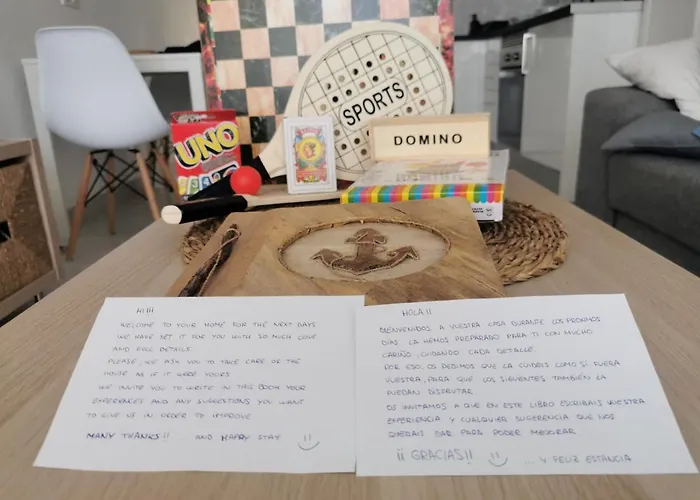 UNO
SPORTS
DOMINO
HI!!!
WELCOME TO YOUR HOME FOR THE NEXT DAYS
WE HAVE SET IT FOR YOU WITH SO MUCH LOVE
AND FULL DETAILS.
PLEASE, WE ASK YOU TO TAKE CARE OF THE
HOUSE AS IF IT WERE YOURS
WE INVITE YOU TO WRITE IN THIS BOOK YOUR
EXPERIENCES AND ANY SUGGESTIONS YOU WANT
TO GIVE US IN ORDER TO IMPROVE
MANY THANKS!! AND HAPPY STAY
HOLA!!
BIENVENIDOS A VUESTRA CASA DURANTE LOS PRÓXIMOS
DÍAS. LA HEMOS PREPARADO PARA TI CON MUCHO
CARIÑO, CUIDANDO CADA DETALLE.
POR ESO, OS PEDIMOS QUE LA CUIDÉIS COMO SI FUERA
VUESTRA, PARA QUE LOS SIGUIENTES TAMBIÉN LA
PUEDAN DISFRUTAR.
OS INVITAMOS A QUE EN ESTE LIBRO ESCRIBÁIS VUESTRA
EXPERIENCIA Y CUALQUIER SUGERENCIA QUE NOS
QUERÁIS DAR PARA PODER MEJORAR.
¡¡ GRACIAS!! ... Y FELIZ ESTANCIA